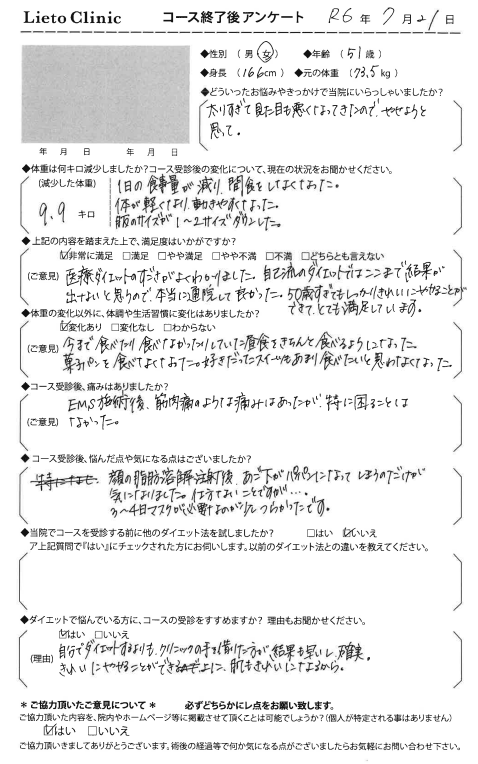 Lieto Clinic コース終了後 アンケート R6 年 7 月 21 日
◆性別 ( 男 ・ 女 ) ◆年齢 ( 51 歳 )
◆身長 ( 166 cm ) ◆元の体重 ( 73.5 kg )
◆どういったお悩みやきっかけで当院にいらっしゃいましたか?
太りすぎて見た目も悪くなってきたので、やせようと
思って。
年 月 日 年 月 日
◆体重は何キロ減少しましたか?コース受診後の変化について、現在の状況をお聞かせください。
(減少した体重)
9.9 キロ
1日の食事量が減り、間食をしなくなった。
体が軽くなり、動きやすくなった。
服のサイズが1〜2サイズダウンした。
◆上記の内容を踏まえた上で、満足度はいかがですか?
☑非常に満足 □満足 □やや満足 □やや不満 □不満 □どちらとも言えない
(ご意見) 医療ダイエットのすごさがよくわかりました。自己流のダイエットではここまで結果が
出せないと思うので、本当に通院して良かった。50歳すぎてもしっかりきれいにやせることが
できて、とても満足しています。
◆体重の変化以外に、体調や生活習慣に変化はありましたか?
☑変化あり □変化なし □わからない
(ご意見) 今まで食べたり食べなかったりしていた昼食をきちんと食べるようになった。
菓子パンを食べなくなった。好きだったスイーツもあまり食べたいと思わなくなった。
◆コース受診後、痛みはありましたか?
(ご意見) EMS施術後、筋肉痛のような痛みはあったが、特に困ることは
なかった。
◆コース受診後、悩んだ点や気になる点はございましたか?
顔の脂肪溶解注射後、あご下がパンパンになってしまうのだけが
気になりました。仕方ないことですが…。
3〜4日マスクが必要なのが少しつらかったです。
◆当院でコースを受診する前に他のダイエット法を試しましたか? □はい ☑いいえ
ア上記質問で『はい』にチェックされた方にお伺いします。以前のダイエット法との違いを教えてください。
◆ダイエットで悩んでいる方に、コースの受診をすすめますか? 理由もお聞かせください。
☑はい □いいえ
(理由) 自分でダイエットするよりも、クリニックの手を借りた方が結果も早いし、確実。
きれいにやせることができるし、肌もきれいになるから。
* ご協力頂いたご意見について * 必ずどちらかにレ点をお願い致します。
ご協力頂いた内容を、院内やホームページ等に掲載させて頂くことは可能でしょうか?(個人が特定される事はありません)
☑はい □いいえ
ご協力頂いきましてありがとうございます。術後の経過等で何か気になる点がございましたらお気軽にお問い合わせ下さい。